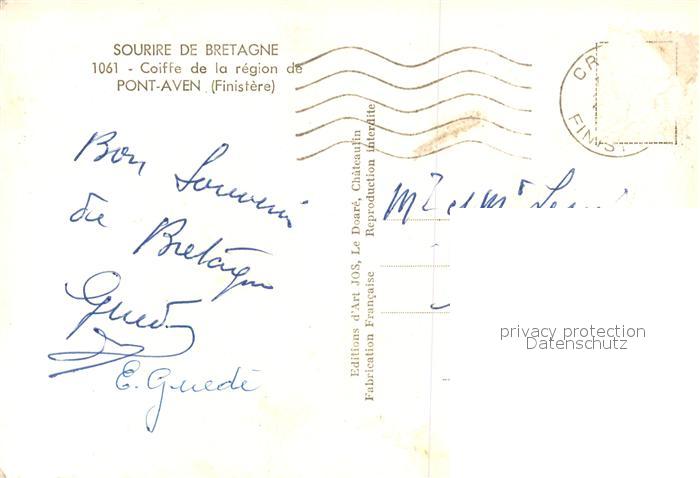 SOURIRE DE BRETAGNE
1061 - Coiffe de la région de
PONT-AVEN (Finistère)
Bon Souvenir
de Bretagne
Guedé
E. Guedé
Editions d'Art JOS, Le Doaré, Châteaulin
Fabrication Française Reproduction interdite
CR
FINIS
et Mr
privacy protection
Datenschutz